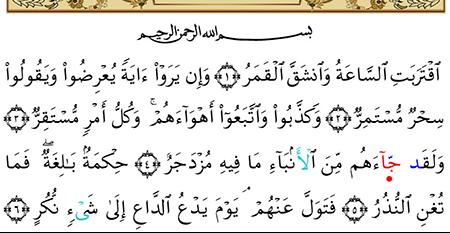 بسم الله الرحمن الرحيم
ٱقْتَرَبَتِ ٱلسَّاعَةُ وَٱنشَقَّ ٱلْقَمَرُ ﴿١﴾ وَإِن يَرَوْا۟ ءَايَةً يُعْرِضُوا۟ وَيَقُولُوا۟
سِحْرٌ مُّسْتَمِرٌّ ﴿٢﴾ وَكَذَّبُوا۟ وَٱتَّبَعُوٓا۟ أَهْوَآءَهُمْ ۚ وَكُلُّ أَمْرٍ مُّسْتَقِرٌّ ﴿٣﴾
وَلَقَد جَّآءَهُم مِّنَ ٱلْأَنۢبَآءِ مَا فِيهِ مُزْدَجَرٌ ﴿٤﴾ حِكْمَةٌۢ بَـٰلِغَةٌ ۖ فَمَا
تُغْنِ ٱلنُّذُرُ ﴿٥﴾ فَتَوَلَّ عَنْهُمْ ۘ يَوْمَ يَدْعُ ٱلدَّاعِ إِلَىٰ شَىْءٍ نُّكُرٍ ﴿٦﴾